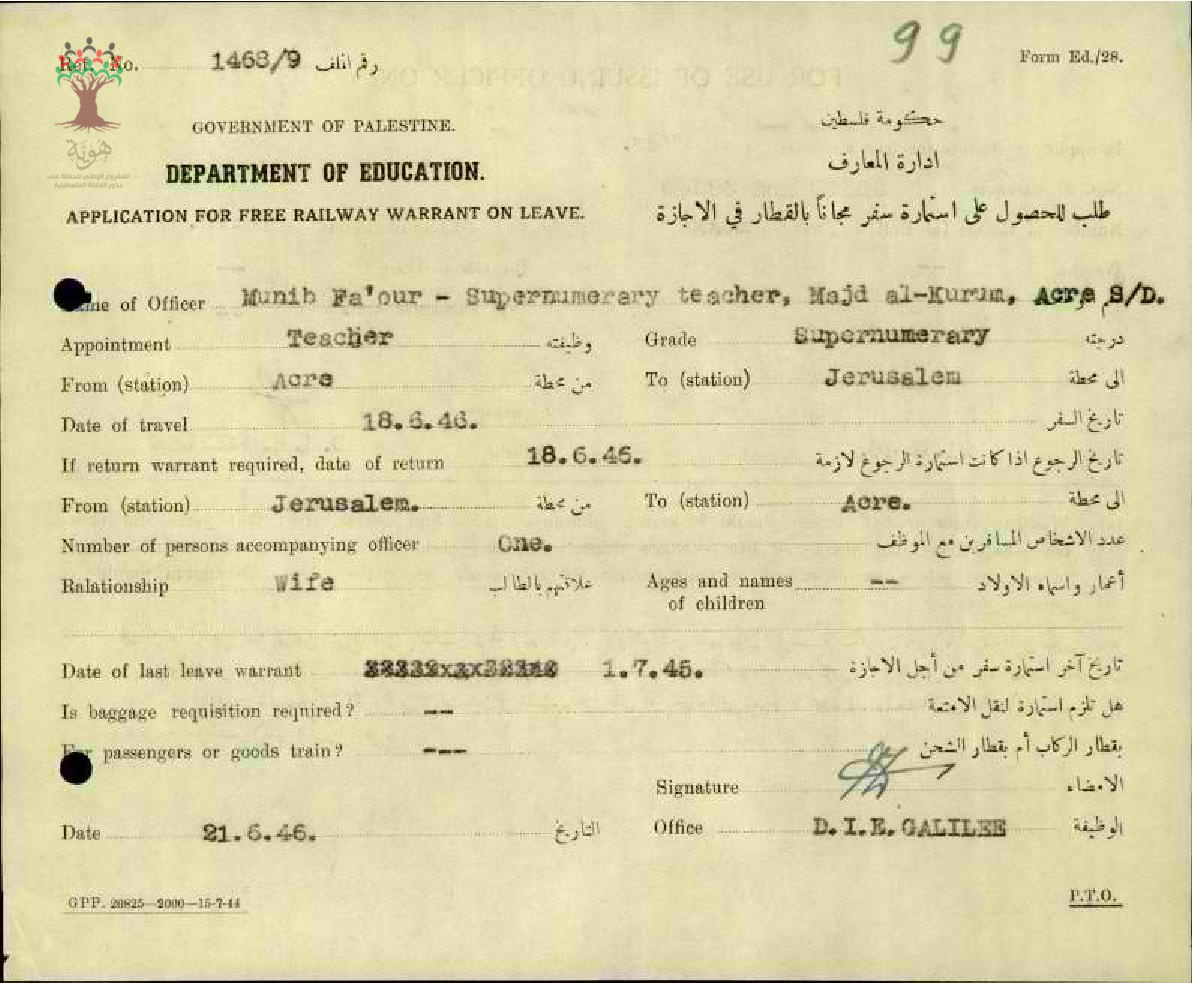 99
Ref. No. 1468/9 رقم الملف
Form Ed./28.
GOVERNMENT OF PALESTINE.
حكومة فلسطين
DEPARTMENT OF EDUCATION.
ادارة المعارف
APPLICATION FOR FREE RAILWAY WARRANT ON LEAVE.
طلب للحصول على استمارة سفر مجاناً بالقطار في الاجازة
هوية
Name of Officer Munib Fa'our - Supernumerary teacher, Majd al-Kurum, Acre S/D.
Appointment Teacher وظيفته Grade Supernumerary درجته
From (station) Acre من محطة To (station) Jerusalem الى محطة
Date of travel 18.6.46. تاريخ السفر
If return warrant required, date of return 18.6.46. تاريخ الرجوع اذا كانت استمارة الرجوع لازمة
From (station) Jerusalem. من محطة To (station) Acre. الى محطة
Number of persons accompanying officer One. عدد الاشخاص المسافرين مع الموظف
Ralationship Wife علاقتهم بالطالب Ages and names of children -- أعمار واسماء الاولاد
Date of last leave warrant 1.7.45. تاريخ آخر استمارة سفر من أجل الاجازة
Is baggage requisition required? -- هل تلزم استمارة لنقل الامتعة
For passengers or goods train? --- بقطار الركاب أم بقطار الشحن
Signature الامضاء
Date 21.6.46. التاريخ Office D.I.E. GALILEE الوظيفة
GPP. 20825—2000—15-7-44
P.T.O.